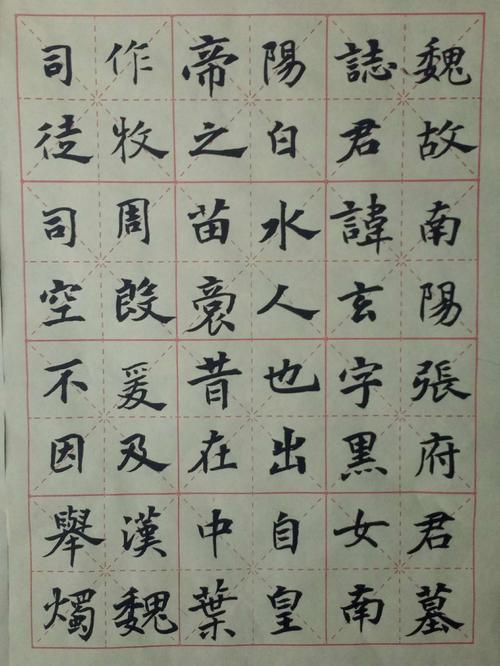 魏故南陽張府君墓
誌君諱玄字黑女南
陽白水人也出自皇
帝之苗裔昔在中葉
作牧周殷爰及漢魏
司徒司空不因舉燭